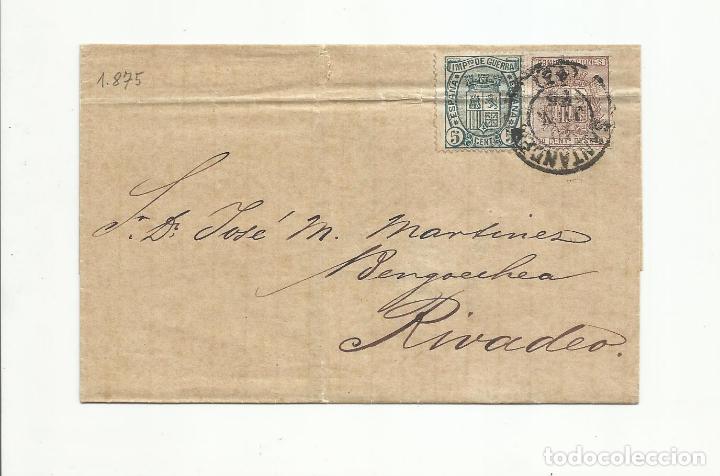 1.875
IMPTO DE GUERRA
ESPAÑA
ESPAÑA
5
CENT
COMUNICACIONES
SANTANDER
Sr. Dn. José M. Martinez
Bengoechea
Rivadeo.
todocoleccion